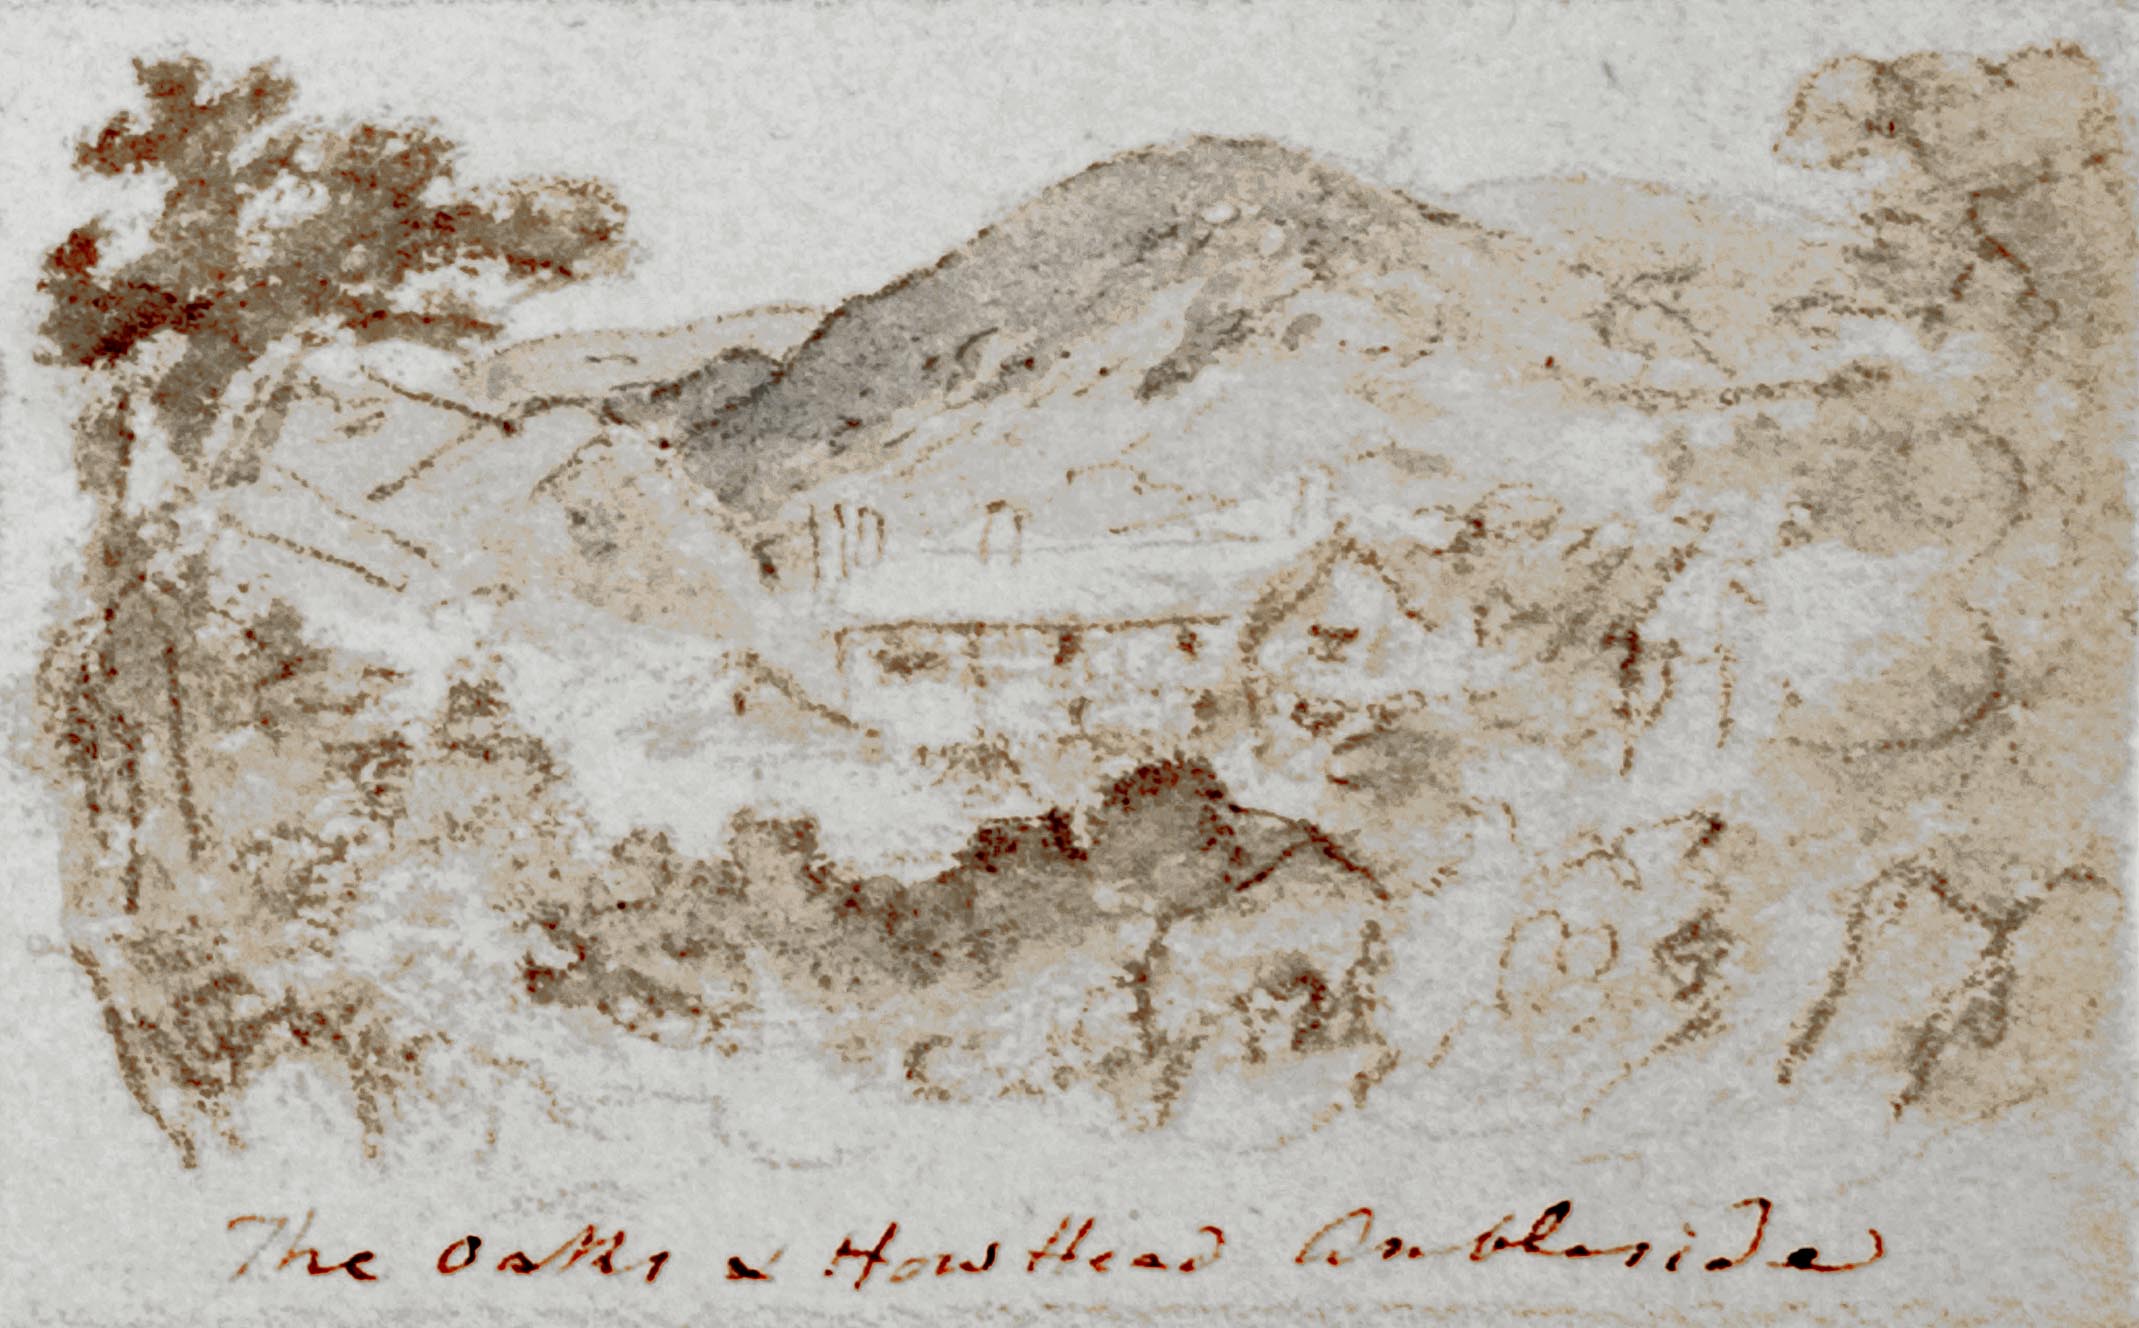 The Oaks & How Head Ambleside